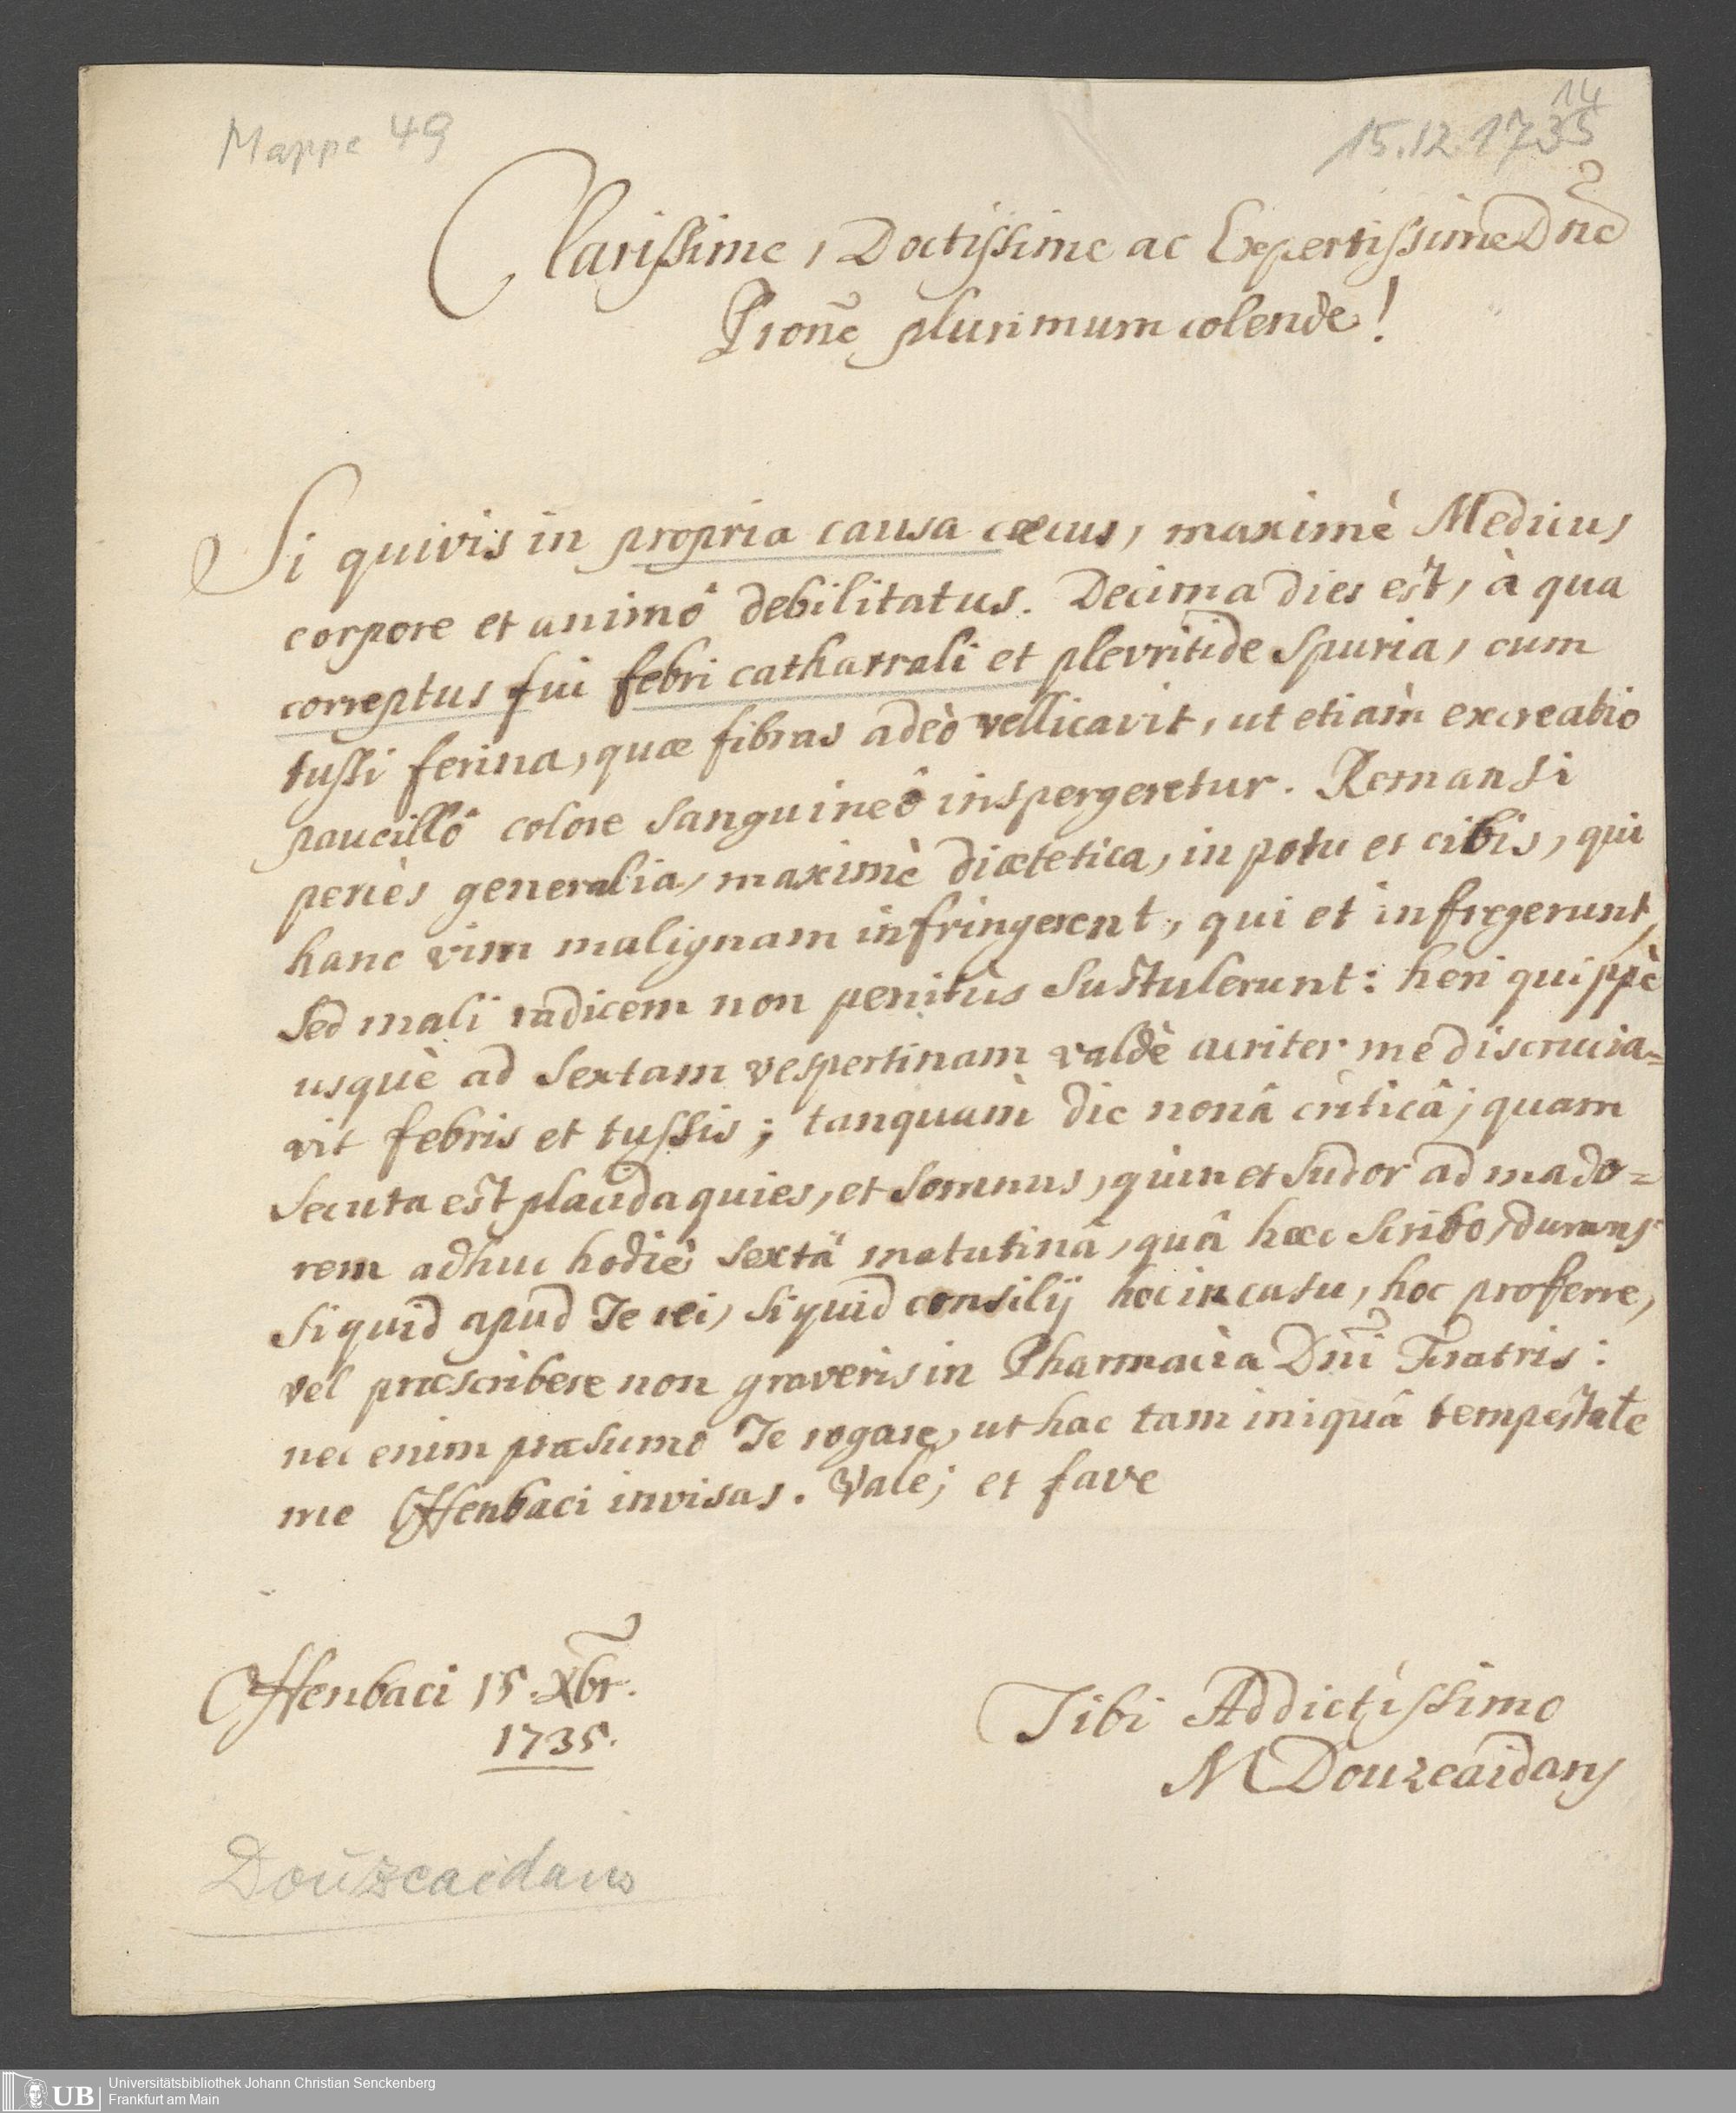 Mappe 49
14
15.12.1735
Clarissime, Doctissime ac Expertissime Dn̄e
Pron̄e plurimum colende!
Si quivis in propria causa cæcus, maximè Medicus
corpore et animô debilitatus. Decima dies est, à qua
correptus fui febri catharrali et plevritide spuria, cum
tussi ferina, quæ fibras adeò vellicavit, ut etiàm excreatio
paucillô colore sanguineô inspergeretur. Remansi
penès generalia, maximè diætetica, in potu et cibis, qui
hanc vim malignam infringerent, qui et infregerunt,
sed mali radicem non penitùs sustulerunt: heri quippè
usquè ad sextam vespertinam valdè acriter me discrucia=
vit febris et tussis; tanquàm die nonâ criticâ; quam
secuta est placida quies, et somnus, quin et sudor ad mado=
rem adhuc hodiè sextâ matutinâ, quâ hæc scribo, durans
si quid apud Te rei, si quid consilij hoc in casu, hoc proferre,
vel præscribere non graveris in Pharmacia Dn̄i Fratris:
nec enim præsumo Te rogare, ut hac tam iniquâ tempestate
me Offenbaci invisas. Vale; et fave
Offenbaci 15. Xbr.
1735.
Tibi Addictissimo
M Douzcaidans
Douzcaidans
UB
Universitätsbibliothek Johann Christian Senckenberg
Frankfurt am Main